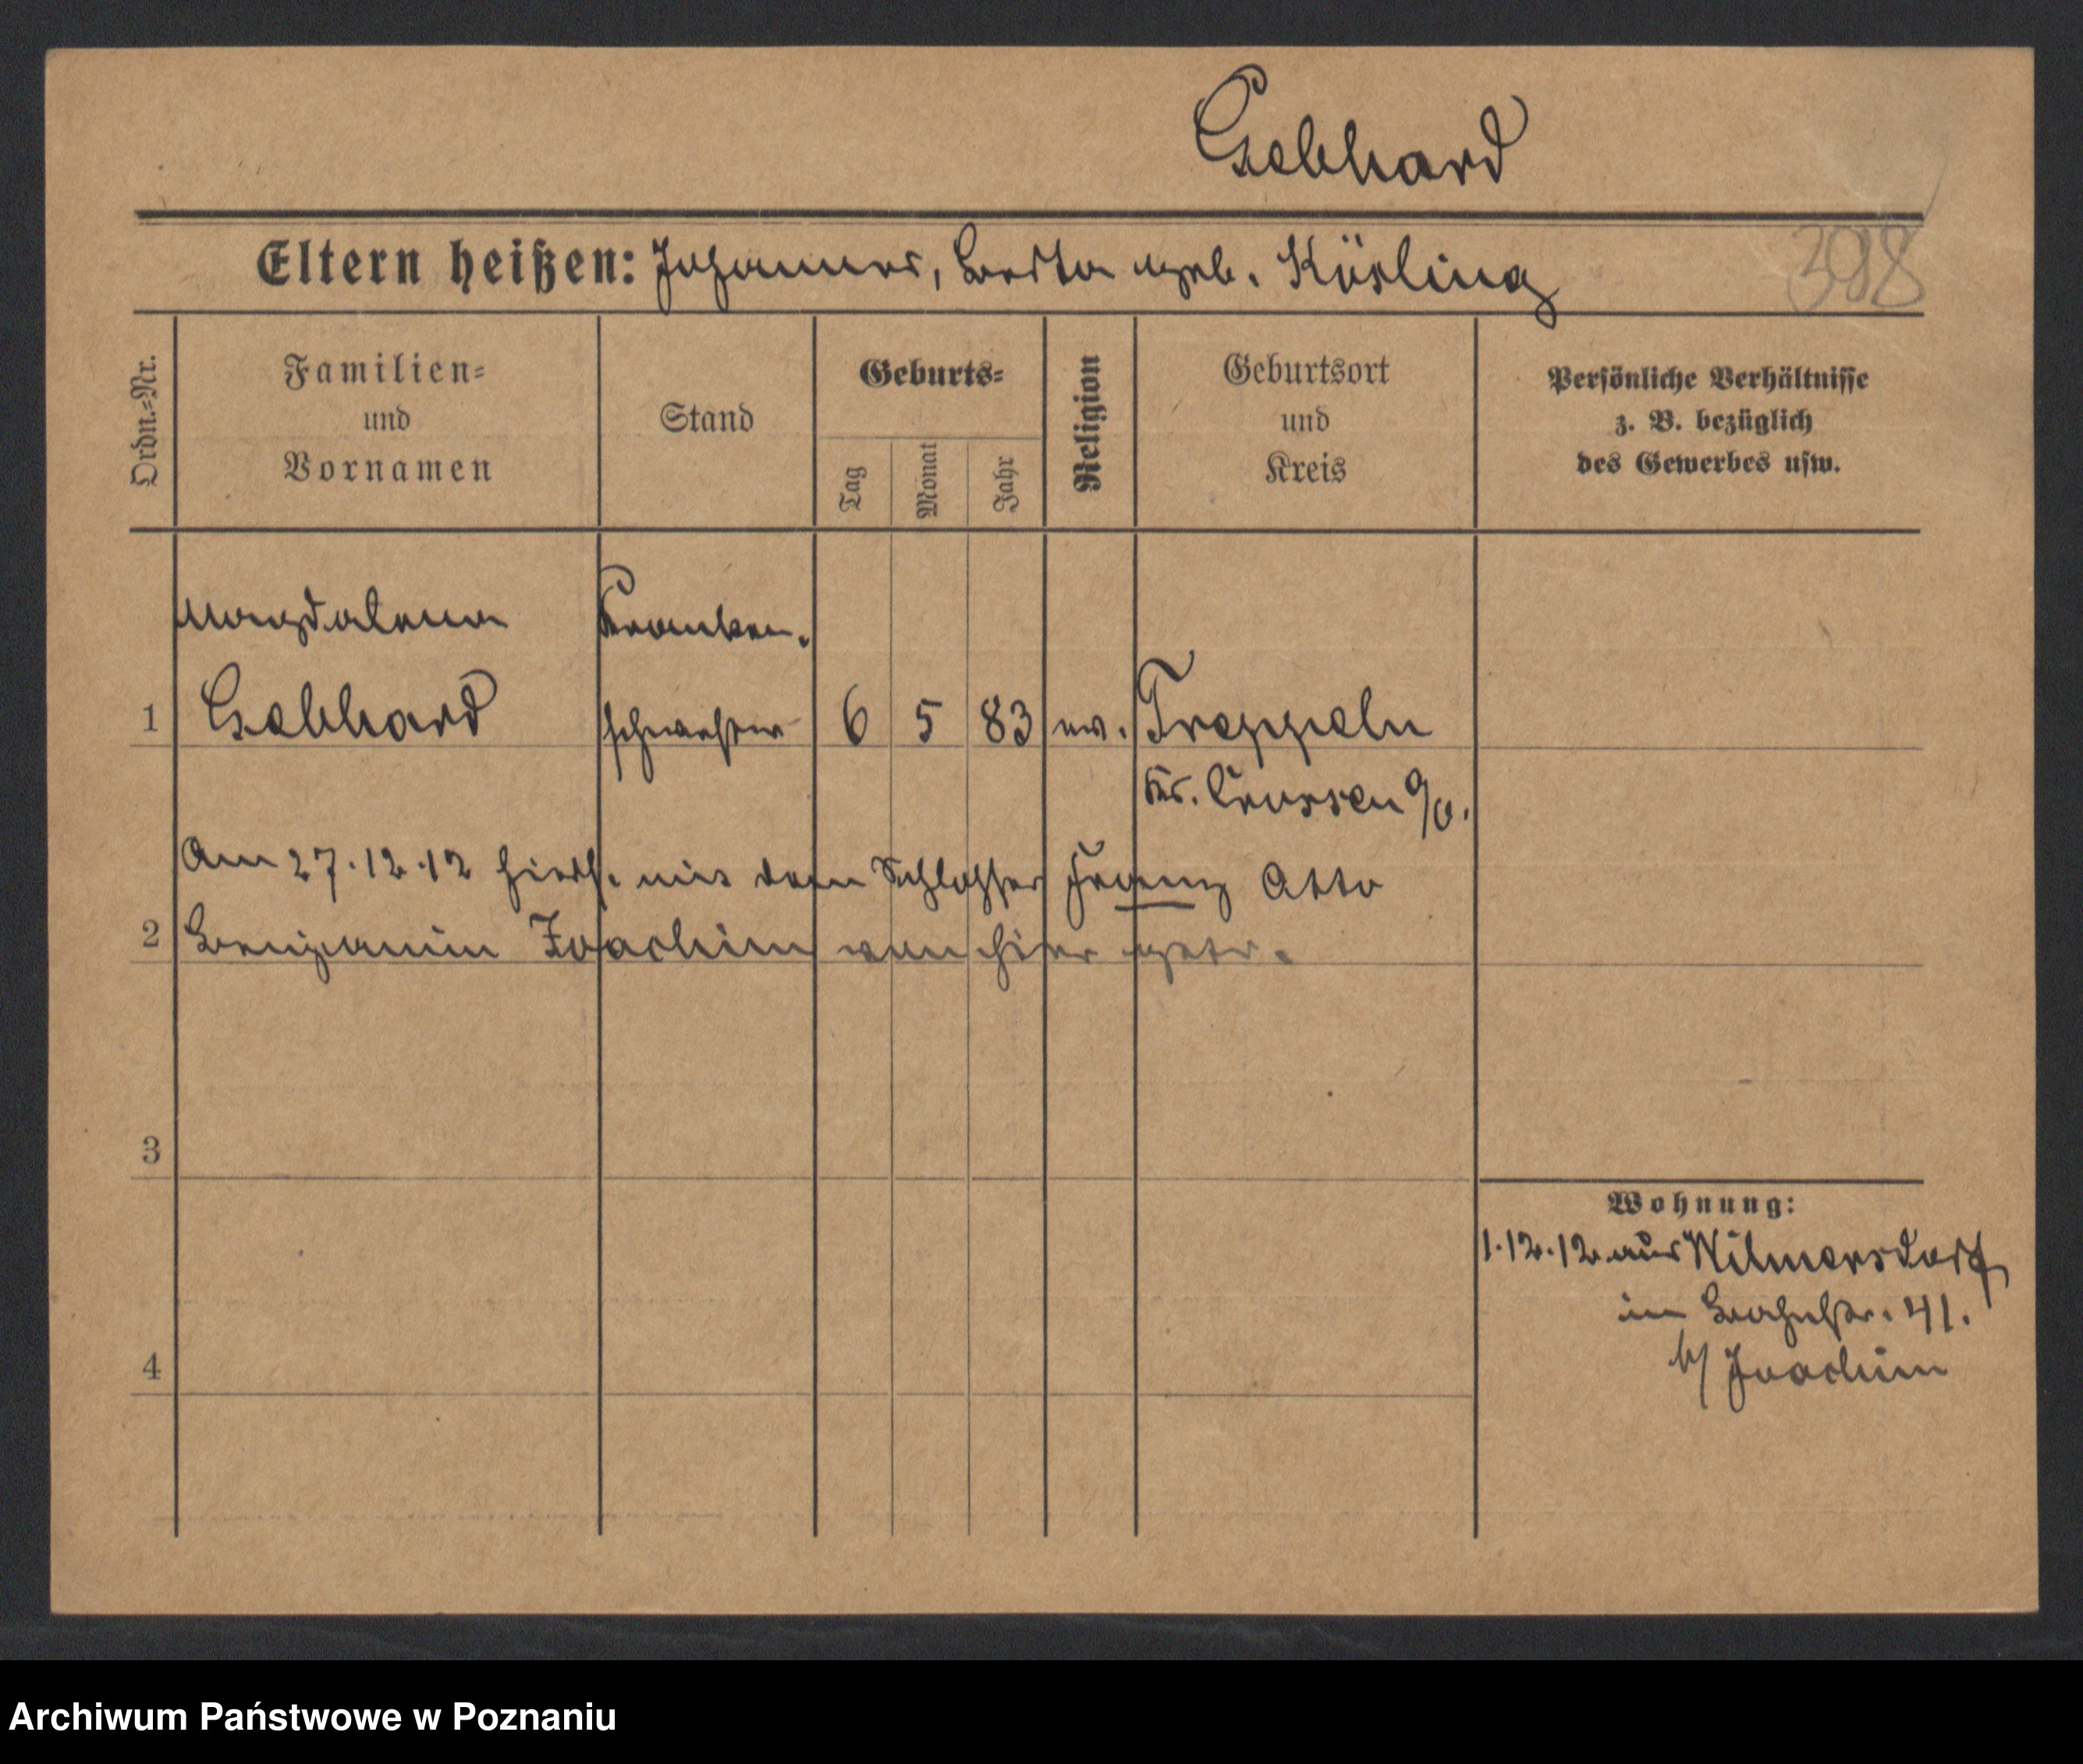 Gebhard
Eltern heißen: Johannes, Berta geb. Küsling
398
Ordn.-Nr.
Familien-
und
Vornamen
Stand
Geburts-
Tag
Monat
Jahr
Religion
Geburtsort
und
Kreis
Persönliche Verhältnisse
z. B. bezüglich
des Gewerbes usw.
Magdalena
Kranken-
1 Gebhard schwester 6 5 83 ev. Treppeln
Krs. Crossen a/O.
Am 27.12.12 hierh. mit dem Schlosser Franz Otto
2 Benjamin Joachim von hier getr.
3
Wohnung:
1.12.12 aus Wilmersdorf
in Bahnstr. 41.
b/ Joachim
4
Archiwum Państwowe w Poznaniu